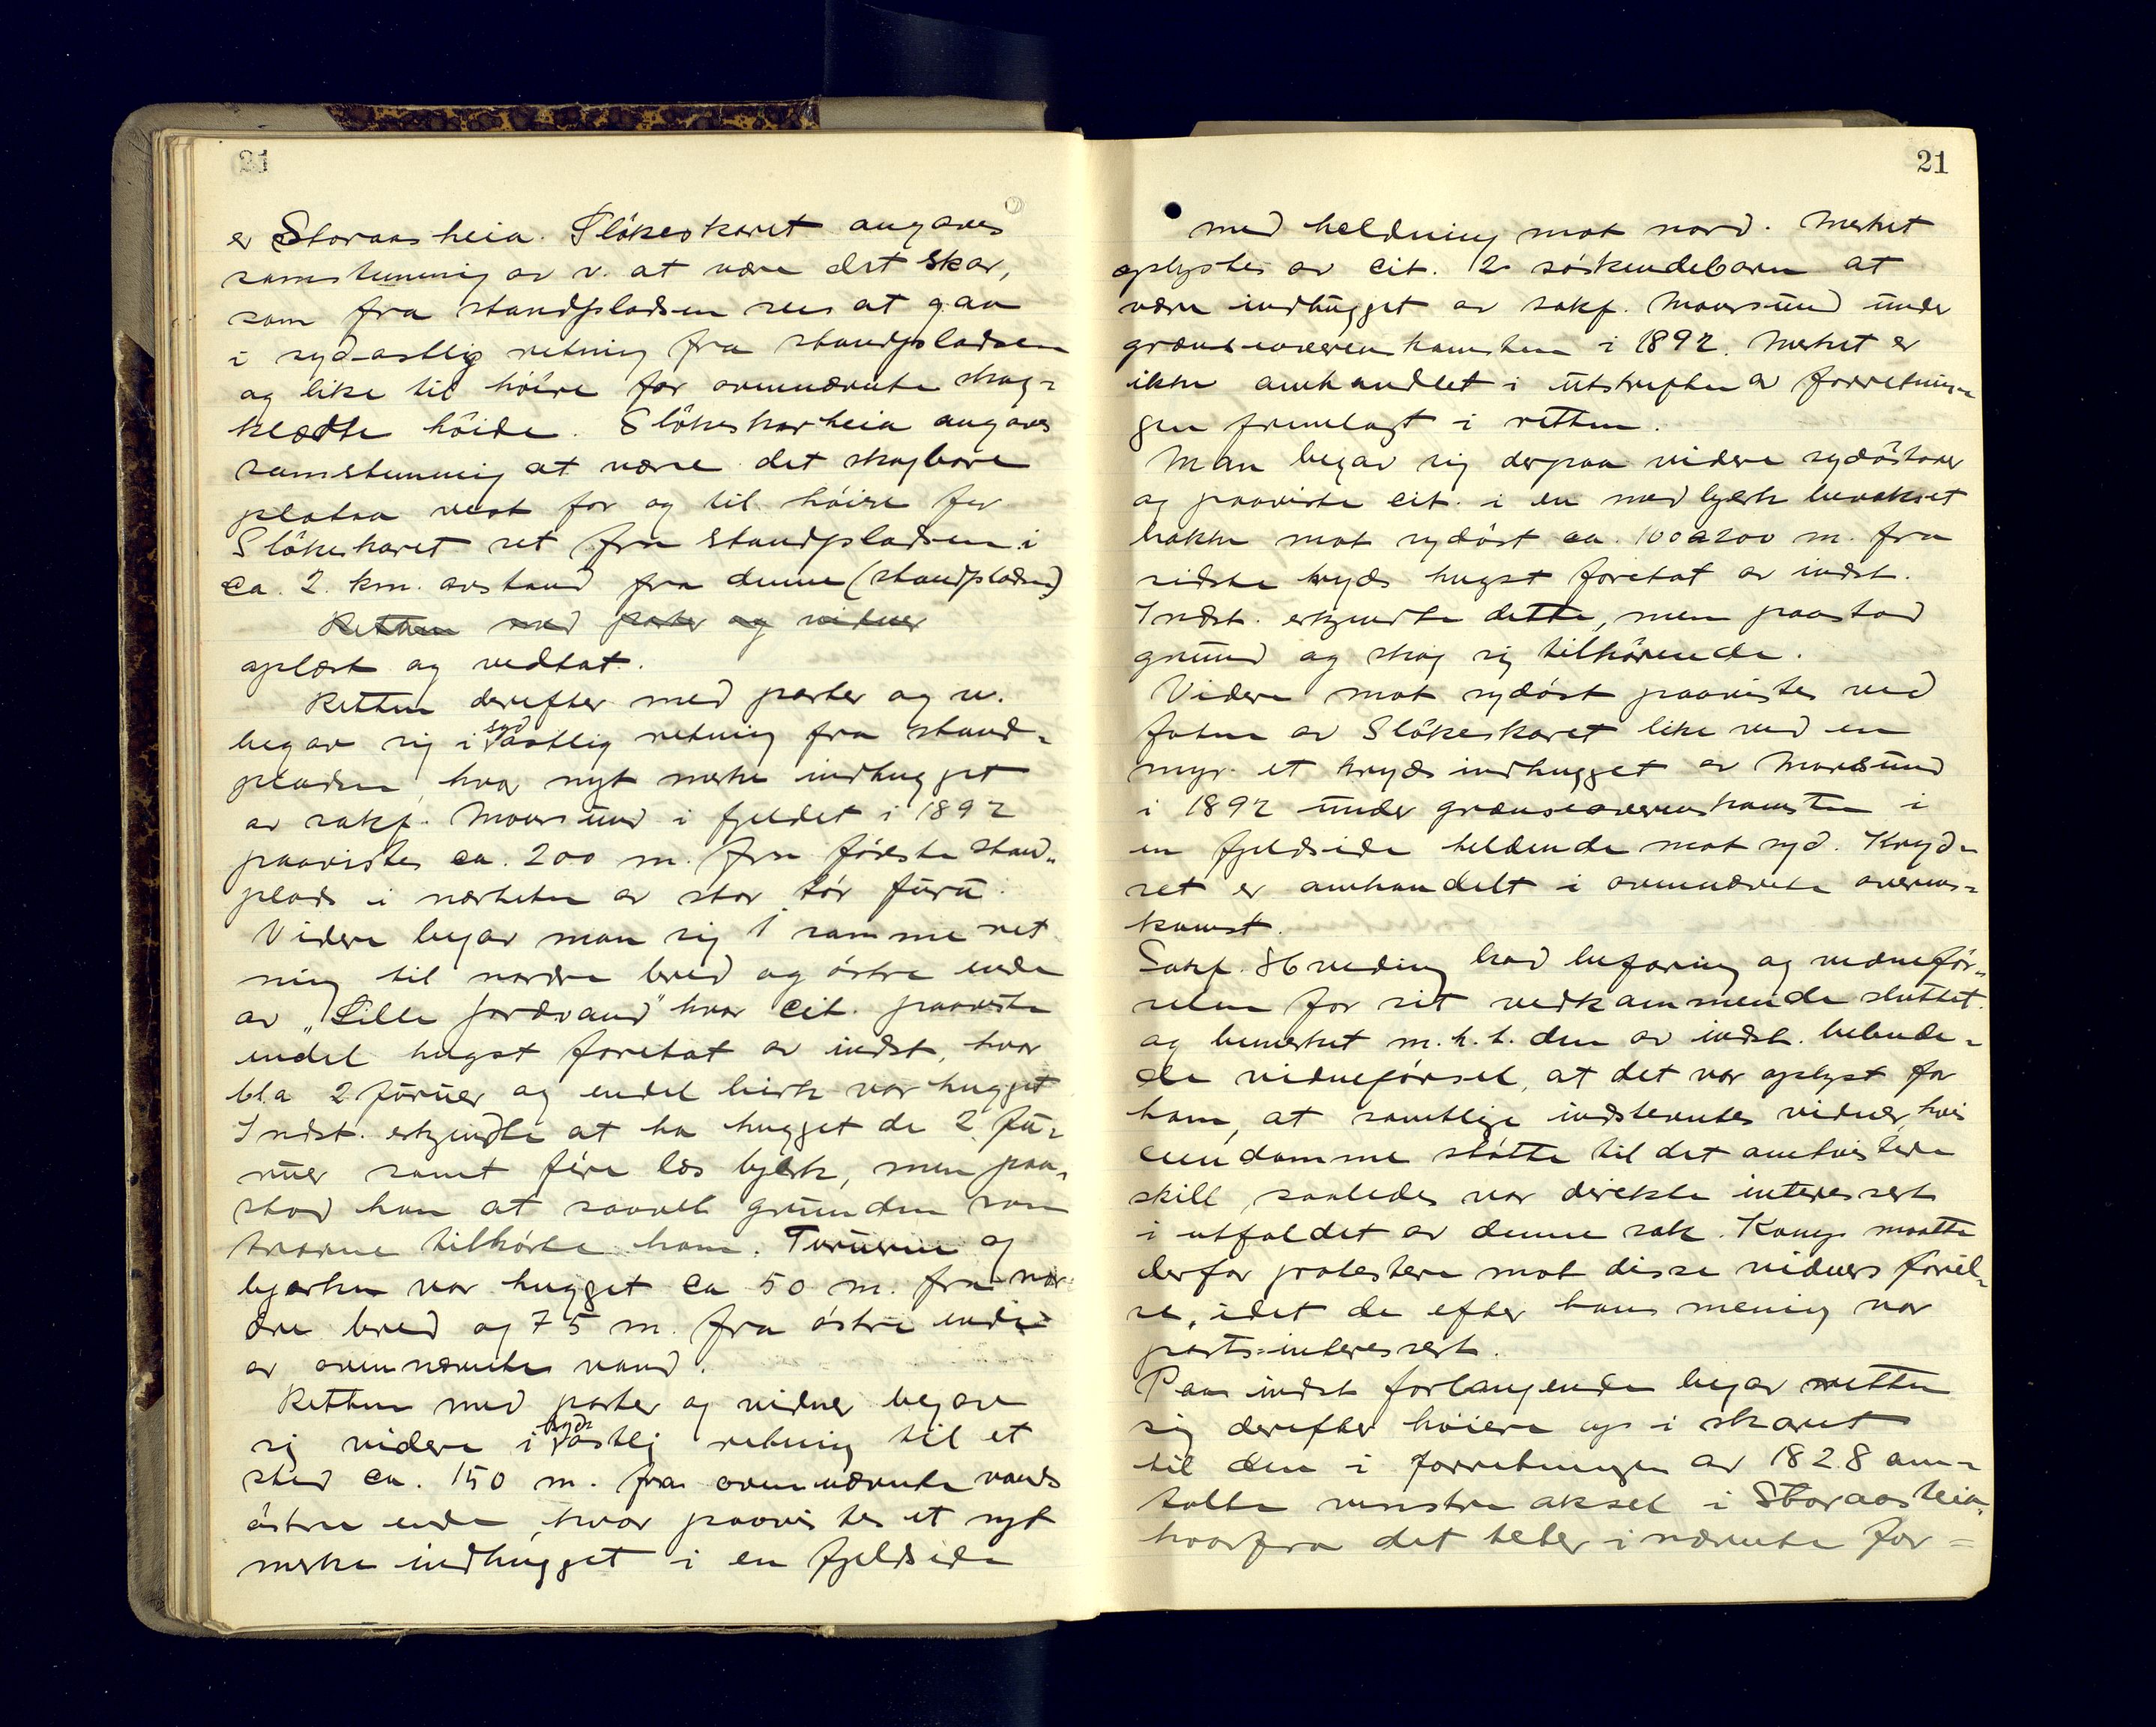 er Storaasheia. Slökeskaret angaves
samstemmig av v. at være det skar,
som fra standpladsen sees at gaa
i syd-astlig retning fra standpladsen
og like til höire for ovennævnte skog-
klædte höide. Slökeskarheia angaves
samstemmig at være det skogbare
plataa vest for og til höire for
Slökeskaret set fra standpladsen i
ca. 2. km. avstand fra denne (standpladsen)
Retten med parter og vidner
oplæst og vedtat.
Retten derefter med parter og v.
begav sig i sydöstlig retning fra stand-
pladsen, hvor nyt merke indhugget
av sakf. Moursund i fjeldet i 1892
paavistes ca. 200 m. fra förste stand-
plads i nærheten av stor tör furu.
Videre begav man sig i samme ret
ning til nordre bred og östre ende
av "Lille Jordvand" hvor cit. paaviste
endel hugst foretat av indst, hvor
bl.a 2 furuer og endel birk var hugget
Indst. erkjendte at ha hugget de 2 fu-
ruer samt fire læs bjerk, men paa-
stod han at saavel grunden som
trærne tilhörte ham. Furuerne og
bjerken var hugget ca 50 m. fra nor-
dre bred og 75 m. fra östre ende
av ovennævnte vand.
Retten med parter og vidner begav
sig videre i sydöstlig retning til et
sted ca. 150 m. fra ovennævnte vands
östre ende, hvor paavistes et nyt
merke indhugget i en fjeldside
21
med heldning mot nord. Merket
oplystes av cit. 2 söskendebarn at
være indhugget av sakf. Moursund under
grænseoverenskomsten i 1892. Merket er
ikke omhandlet i utskriften av forretnin-
gen fremlagt i retten.
Man begav sig derpaa videre sydöstover
og paaviste cit. i en med bjerk bevokset
bakke mot sydöst ca. 100 a 200 m. fra
sidste kryds hugst foretat av indst.
Indst. erkjendte dette, men paastod
grund og skog sig tilhörende.
Videre mot sydöst paavistes ved
foten av Slökeskaret like ved en
myr et kryds indhugget av Moursund
i 1892 under grænseoverenskomsten i
en fjeldside heldende mot syd. Kryd-
set er omhandelt i ovennævnte overens-
komst.
Sakf. Hveding bad befaring og vidneför-
selen for sit vedkommende sluttet.
og bemerket m.h.t. den av indst. bebude-
de vidneförsel, at det var oplyst for
ham, at samtlige indstevntes vidner, hvis
eiendomme stötte til det omtvistede
skill, saaledes var direkte interessert
i utfaldet av denne sak. Komp. maatte
derfor protestere mot disse vidners förel-
se, idet de efter hans mening var
parts-interessert.
Paa indst forlangende begav retten
sig derefter höiere op i skaret
til den i forretningen av 1828 om-
talte venstre aksel i Storaasheia,
hvorfra det heter i nævnte for=